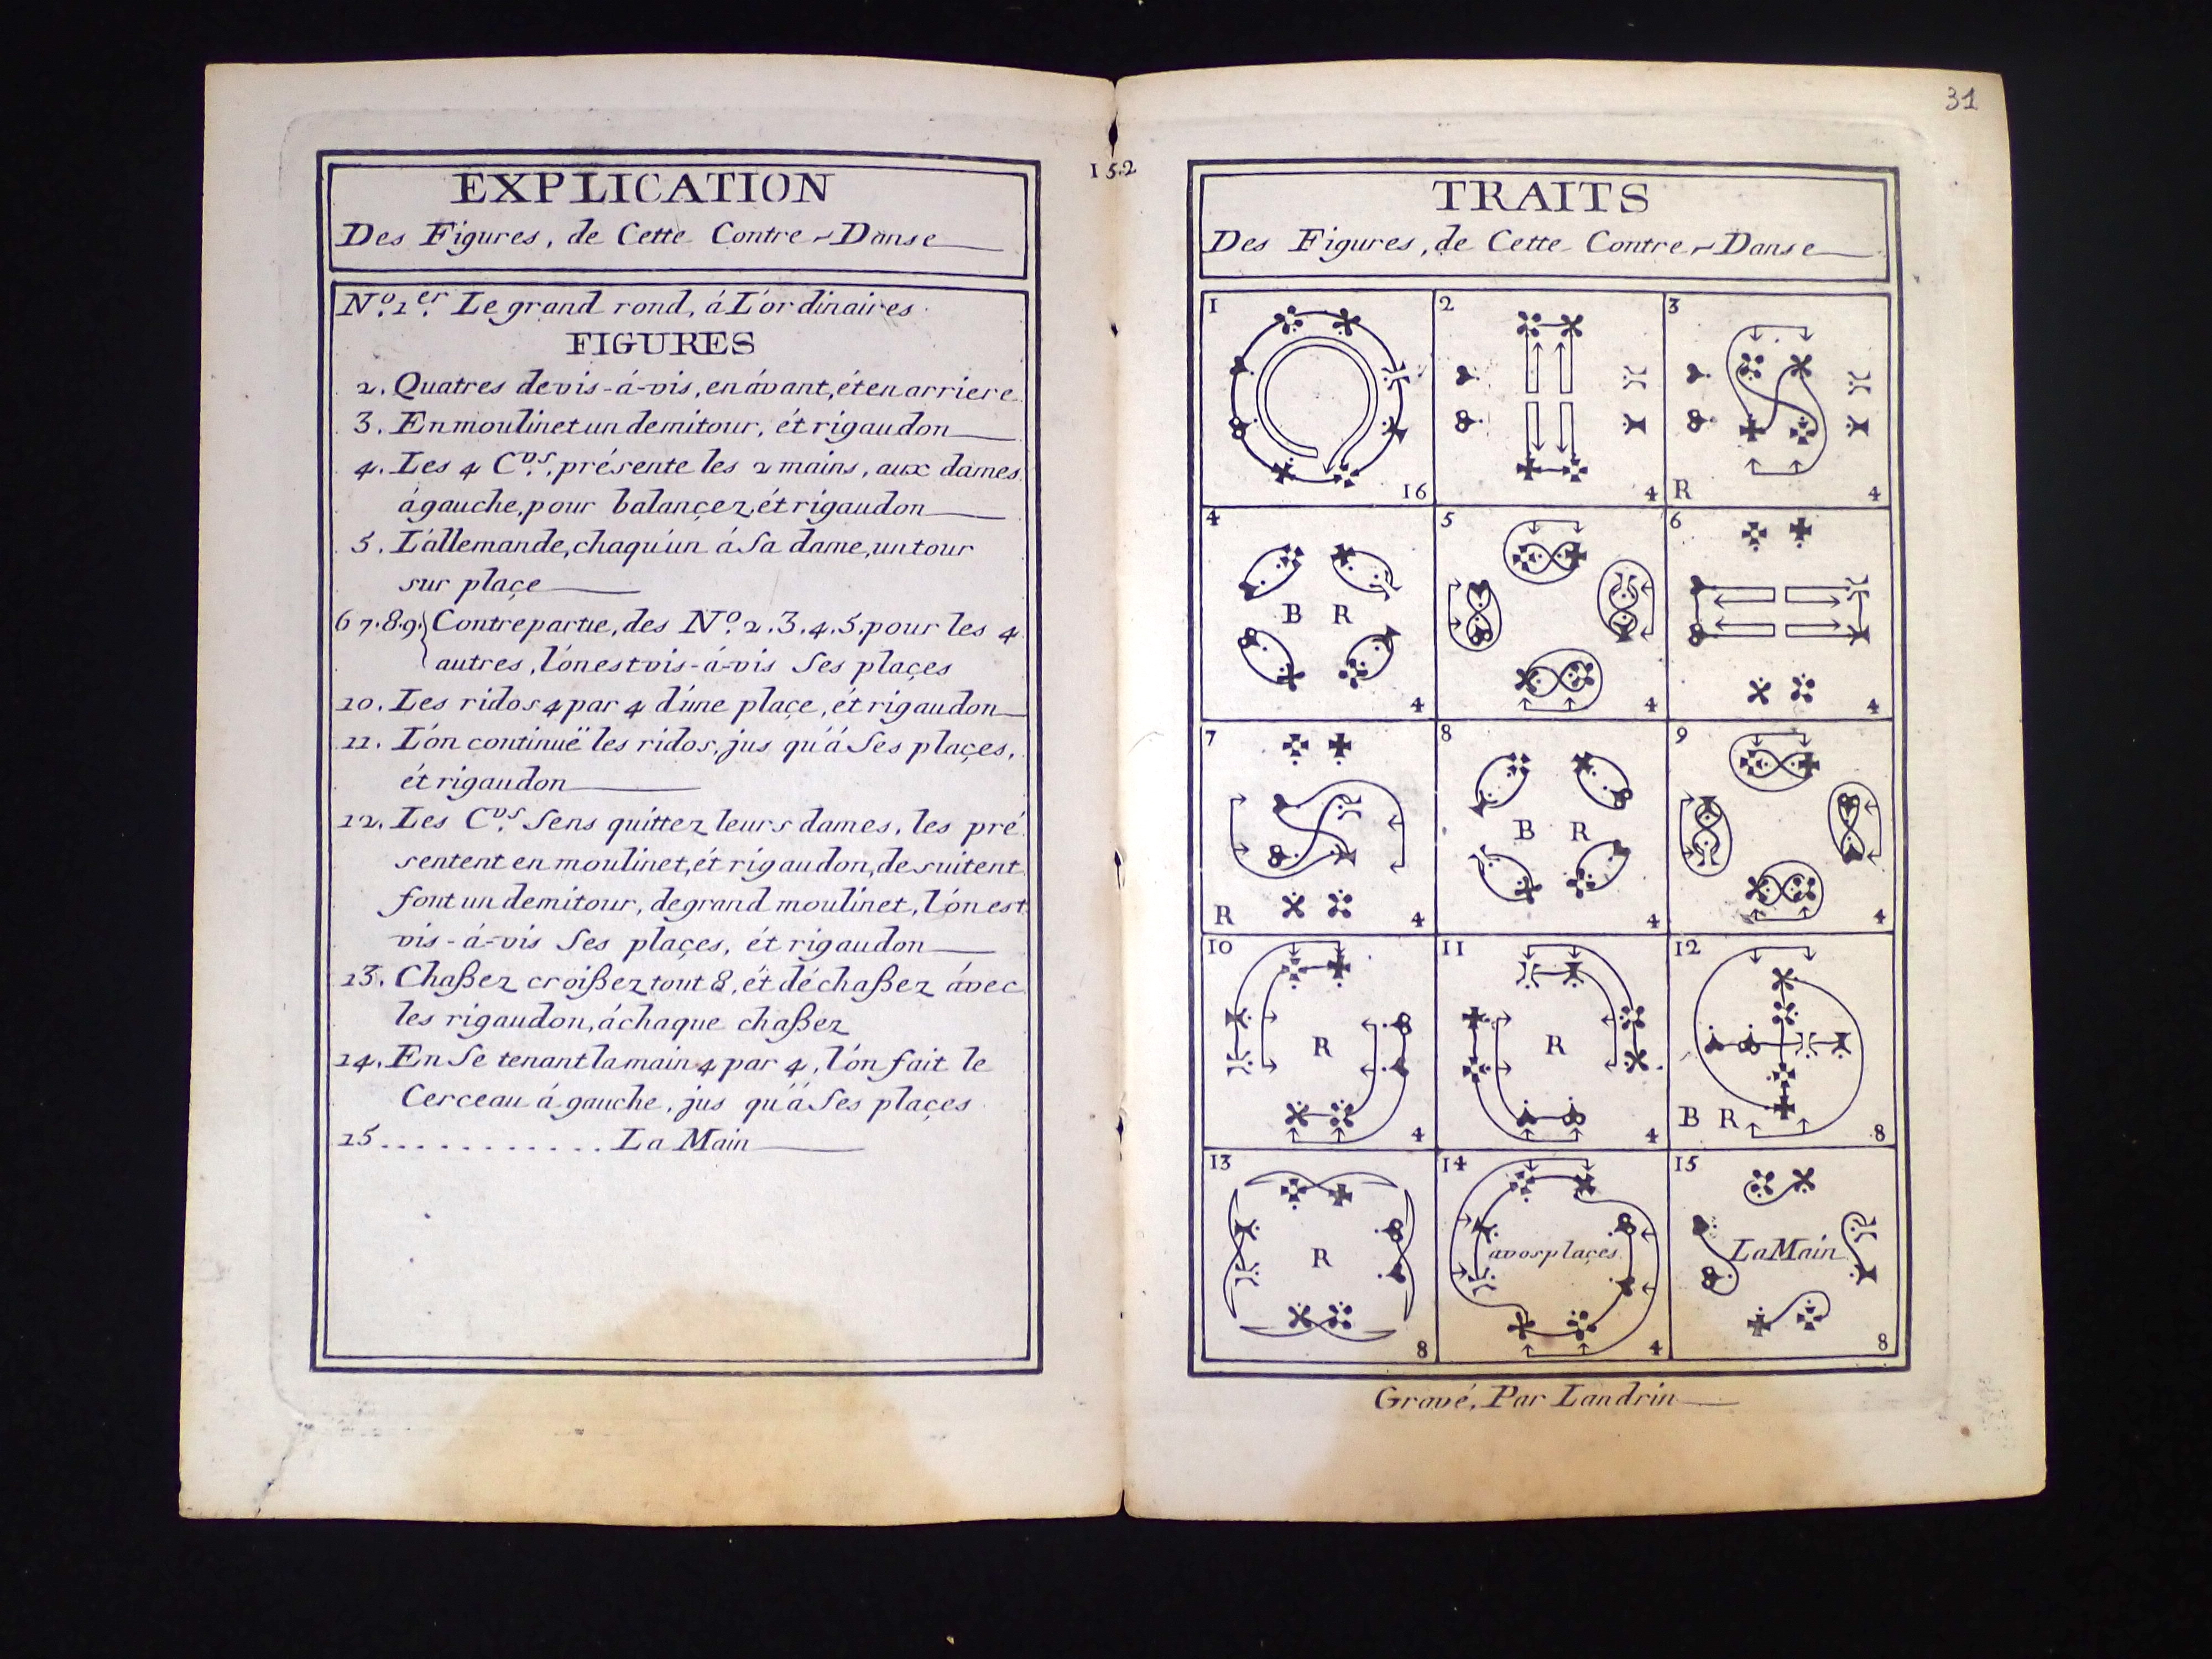 EXPLICATION
Des Figures, de Cette Contre-Danse
Nº. 1er. Le grand rond, á L'ordinaires.
FIGURES
2. Quatres devis-á-vis, en ávant, ét en arriere
3. En moulinet un demitour, ét rigaudon
4. Les 4 C.ᴰˢ. présente les 2 mains, aux dames
á gauche, pour balançez, ét rigaudon
5. L'allemande, chaqu'un á Sa dame, un tour
sur plaçe
6 7.8.9. Contrepartie, des Nº. 2.3.4.5. pour les 4
autres, l'ón est vis-á-vis Ses plaçes
10. Les ridos 4 par 4 d'úne plaçe, ét rigaudon
11. L'ón continuë les ridos, jus qu'á Ses plaçes,
ét rigaudon
12. Les C.ᴰˢ. Sens quittez leurs dames, les pré
sentent en moulinet, ét rigaudon, de suitent
font un demitour, de grand moulinet, l'ón est
vis-á-vis Ses plaçes, ét rigaudon
13. Chaßez croißez tout 8, ét déchaßez ávec
les rigaudon, á chaque chaßez
14. En Se tenant la main 4 par 4, l'ón fait le
Cerceau á gauche, jus qu'á Ses plaçes
15. . . . . . . . . . . . La Main
152
31
TRAITS
Des Figures, de Cette Contre-Danse
1
16
2
4
3
R
4
4
B R
4
5
4
6
4
7
R
4
8
B R
4
9
4
10
R
4
11
R
4
12
B R
8
13
R
8
14
avos plaçes.
4
15
La Main
8
Gravé, Par Landrin